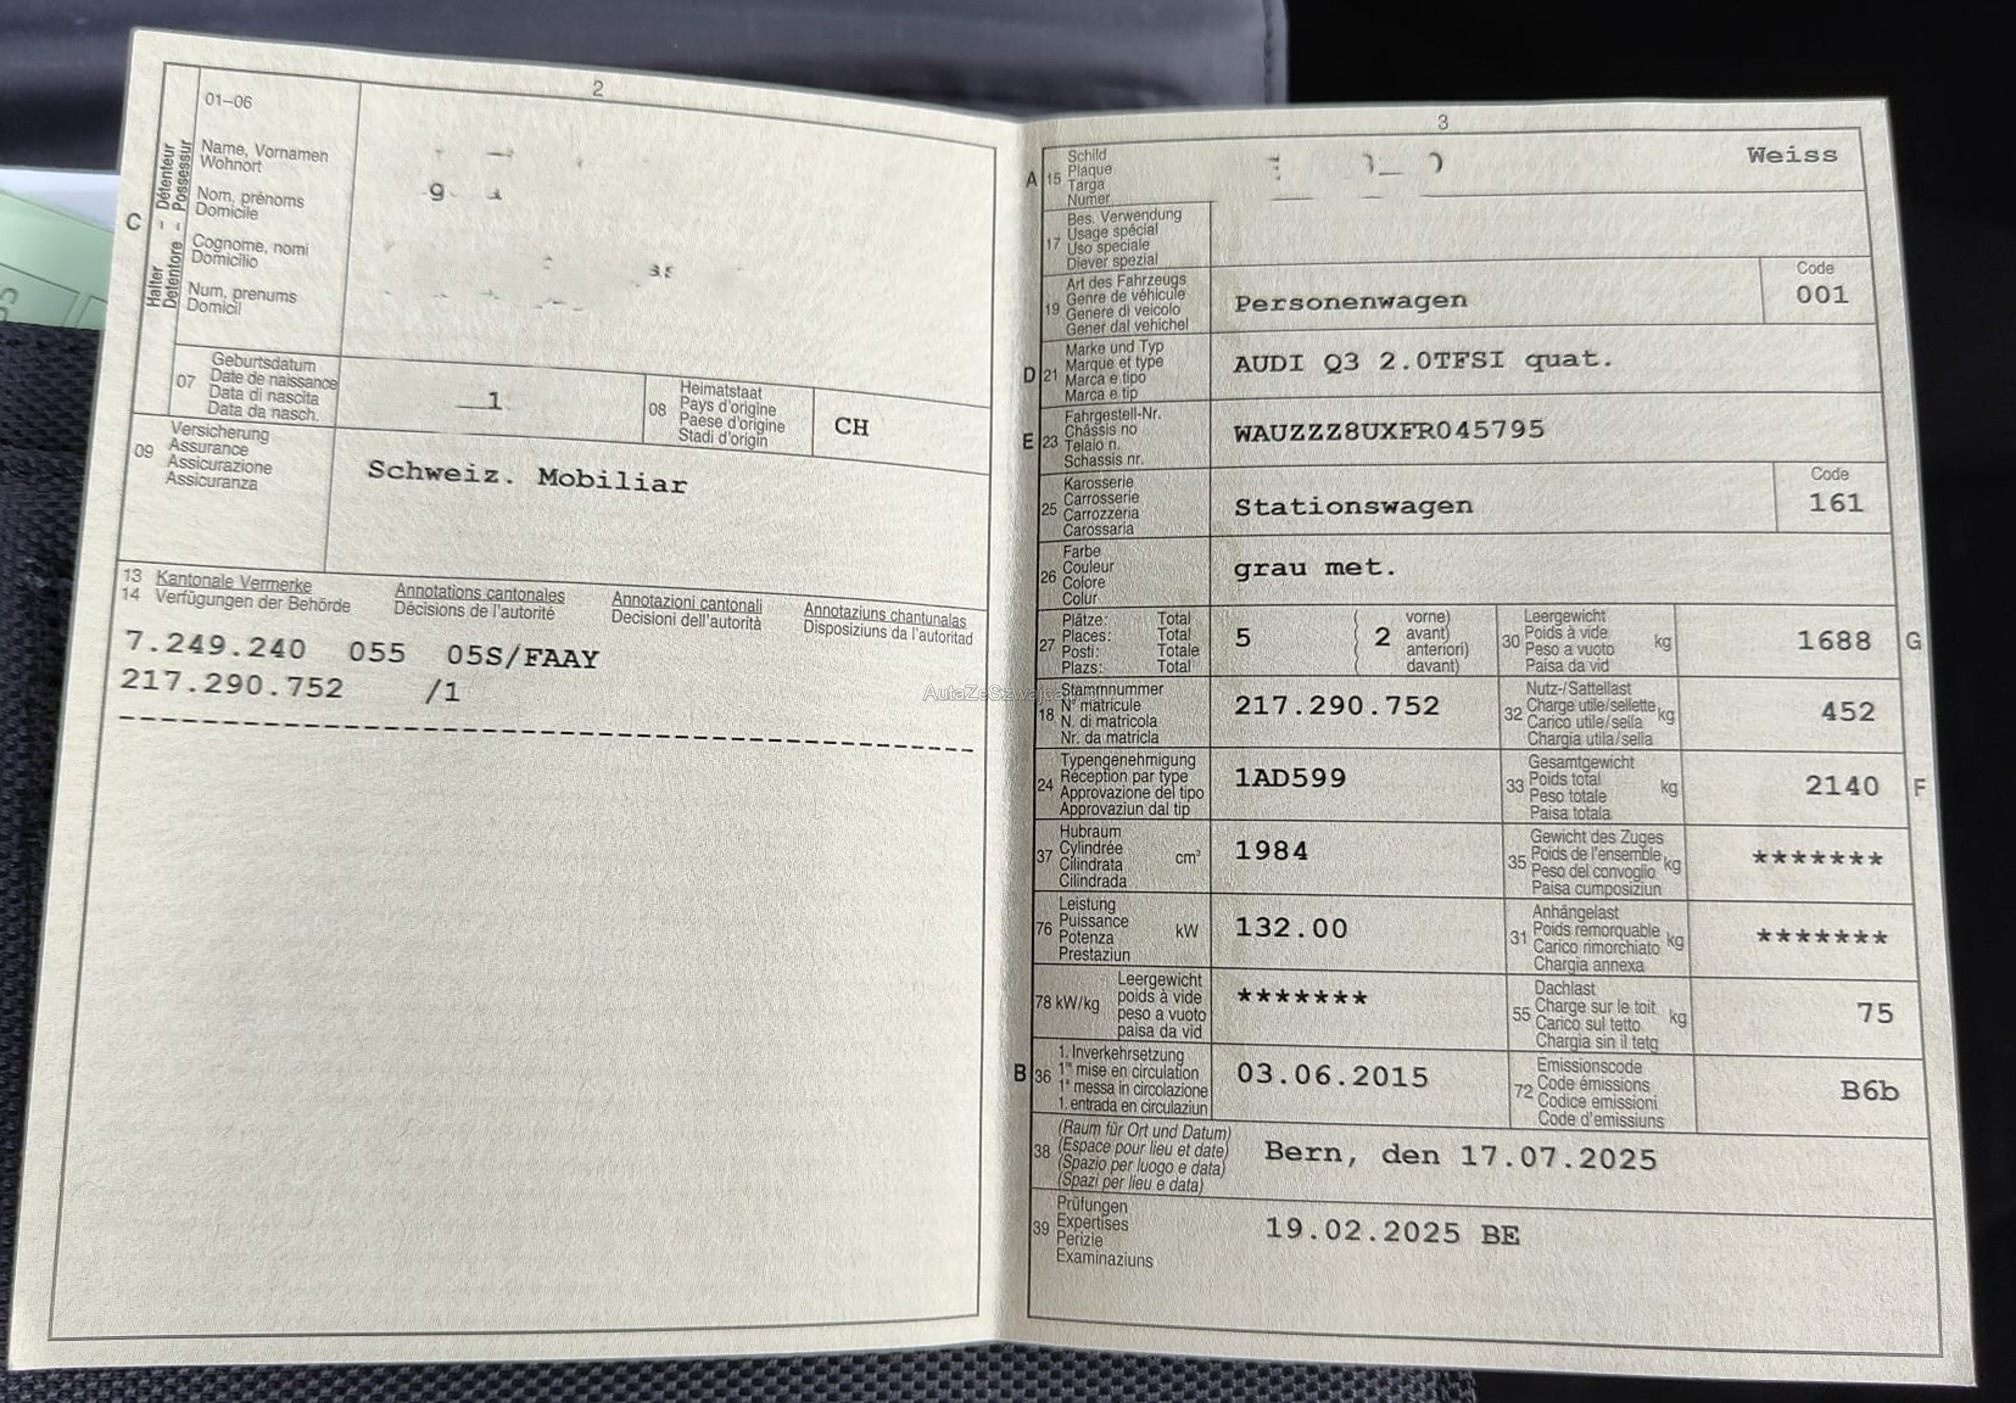 2
01–06
Name, Vornamen
Wohnort
Nom, prénoms
Domicile
Cognome, nomi
Domicilio
Num, prenums
Domicil
C
Halter – Détenteur
Detentore – Possessur
07
Geburtsdatum
Date de naissance
Data di nascita
Data da nasch.
1
08
Heimatstaat
Pays d'origine
Paese d'origine
Stadi d'origin
CH
09
Versicherung
Assurance
Assicurazione
Assicuranza
Schweiz. Mobiliar
13 Kantonale Vermerke
14 Verfügungen der Behörde
Annotations cantonales
Décisions de l'autorité
Annotazioni cantonali
Decisioni dell'autorità
Annotaziuns chantunalas
Disposiziuns da l'autoritad
7.249.240 055 05S/FAAY
217.290.752 /1
3
A 15
Schild
Plaque
Targa
Numer
Weiss
17
Bes. Verwendung
Usage spécial
Uso speciale
Diever spezial
19
Art des Fahrzeugs
Genre de véhicule
Genere di veicolo
Gener dal vehichel
Personenwagen
Code
001
D 21
Marke und Typ
Marque et type
Marca e tipo
Marca e tip
AUDI Q3 2.0TFSI quat.
E 23
Fahrgestell-Nr.
Châssis no
Telaio n.
Schassis nr.
WAUZZZ8UXFR045795
25
Karosserie
Carrosserie
Carrozzeria
Carossaria
Stationswagen
Code
161
26
Farbe
Couleur
Colore
Colur
grau met.
27
Plätze: Total
Places: Total
Posti: Totale
Plazs: Total
5
2
vorne)
avant)
anteriori)
davant)
30
Leergewicht
Poids à vide
Peso a vuoto
Paisa da vid
kg
1688
G
18
Stammnummer
N° matricule
N. di matricola
Nr. da matricla
217.290.752
32
Nutz-/Sattellast
Charge utile/sellette
Carico utile/sella
Chargia utila/sella
kg
452
24
Typengenehmigung
Réception par type
Approvazione del tipo
Approvaziun dal tip
1AD599
33
Gesamtgewicht
Poids total
Peso totale
Paisa totala
kg
2140
F
37
Hubraum
Cylindrée
Cilindrata
Cilindrada
cm³
1984
35
Gewicht des Zuges
Poids de l'ensemble
Peso del convoglio
Paisa cumposiziun
kg
*******
76
Leistung
Puissance
Potenza
Prestaziun
kW
132.00
31
Anhängelast
Poids remorquable
Carico rimorchiato
Chargia annexa
kg
*******
78 kW/kg
Leergewicht
poids à vide
peso a vuoto
paisa da vid
*******
55
Dachlast
Charge sur le toit
Carico sul tetto
Chargia sin il tetg
kg
75
B 36
1. Inverkehrsetzung
1re mise en circulation
1a messa in circolazione
1. entrada en circulaziun
03.06.2015
72
Emissionscode
Code émissions
Codice emissioni
Code d'emissiuns
B6b
38
(Raum für Ort und Datum)
(Espace pour lieu et date)
(Spazio per luogo e data)
(Spazi per lieu e data)
Bern, den 17.07.2025
39
Prüfungen
Expertises
Perizie
Examinaziuns
19.02.2025 BE